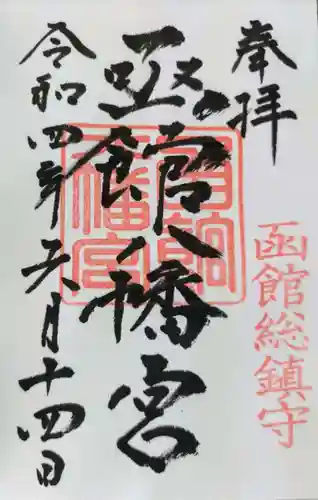 奉拝
函館総鎮守
函館八幡宮
函館八幡宮
令和四年六月十四日